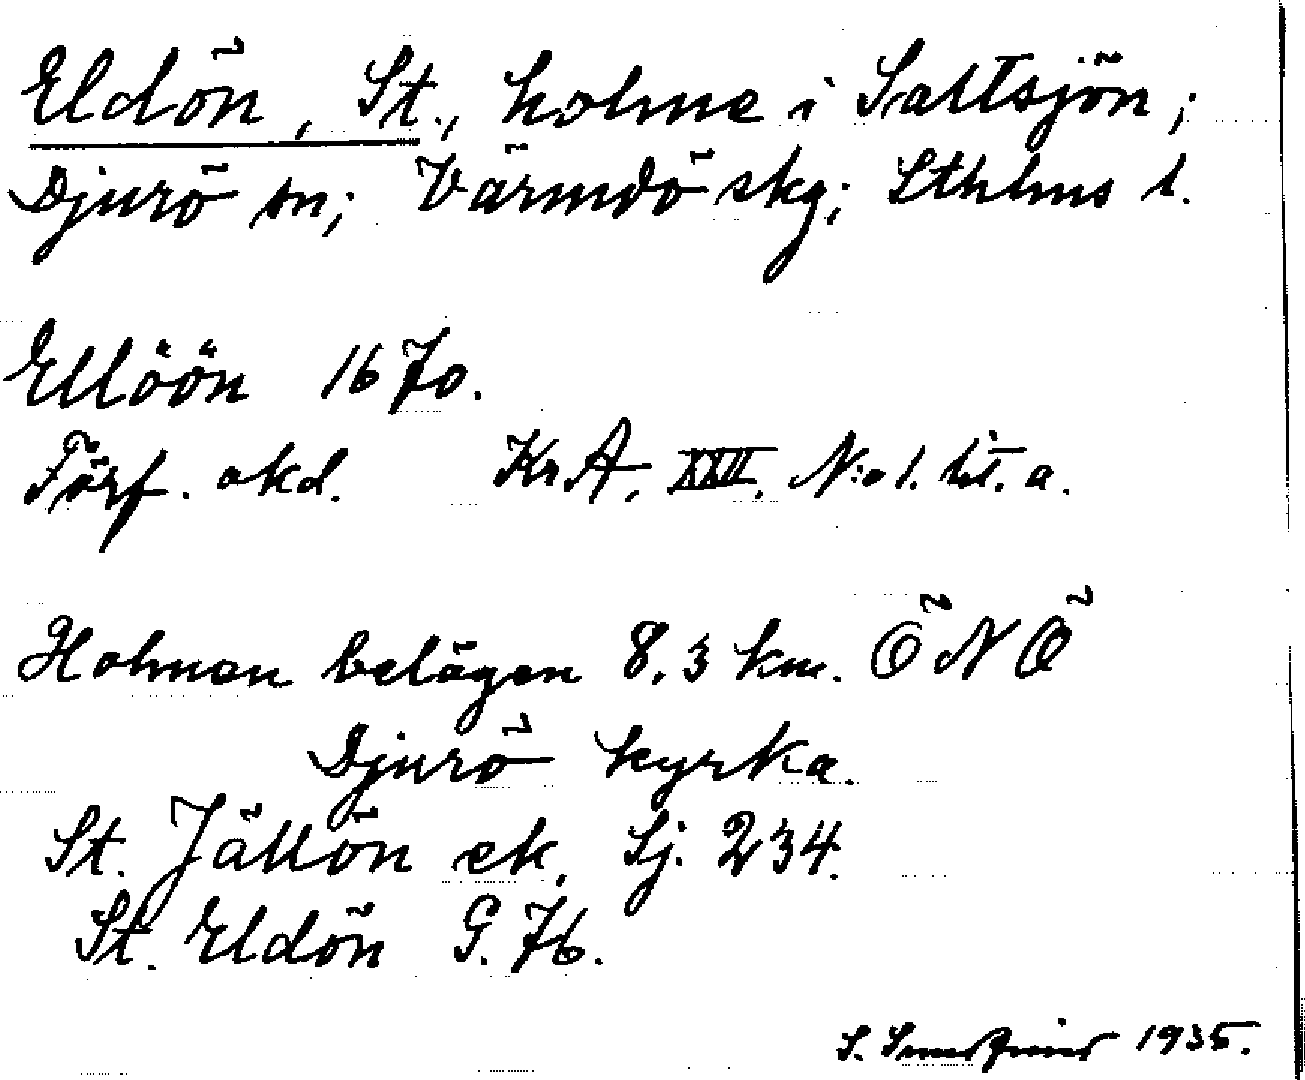 Eldön, St., holme i Saltsjön;
Djurö sn; Värmdö skg; Sthlms l.
Ellöön 1670.
Förf. okd. KrA, XXVII, N:o 1. lit. a.
Holmen belägen 8,3 km. ÖNÖ
Djurö kyrka.
St. Jällön ek. Sj. 234.
St. Eldön G. 76.
S. 1935.